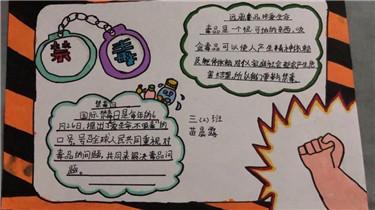 禁 毒
远离毒品 珍爱生命
毒品是一个很可怕的东西，吸
食毒品可以使人产生精神依赖
及躯体依赖，对个人家庭社会都会产生危
禁毒日
国际禁毒日是每年的6
月26日，提出了"爱生命 不吸毒"的
口号，号召全球人民共同重视对
毒品的问题，共同来解决毒品问
题。
三(2)班
苗晨露